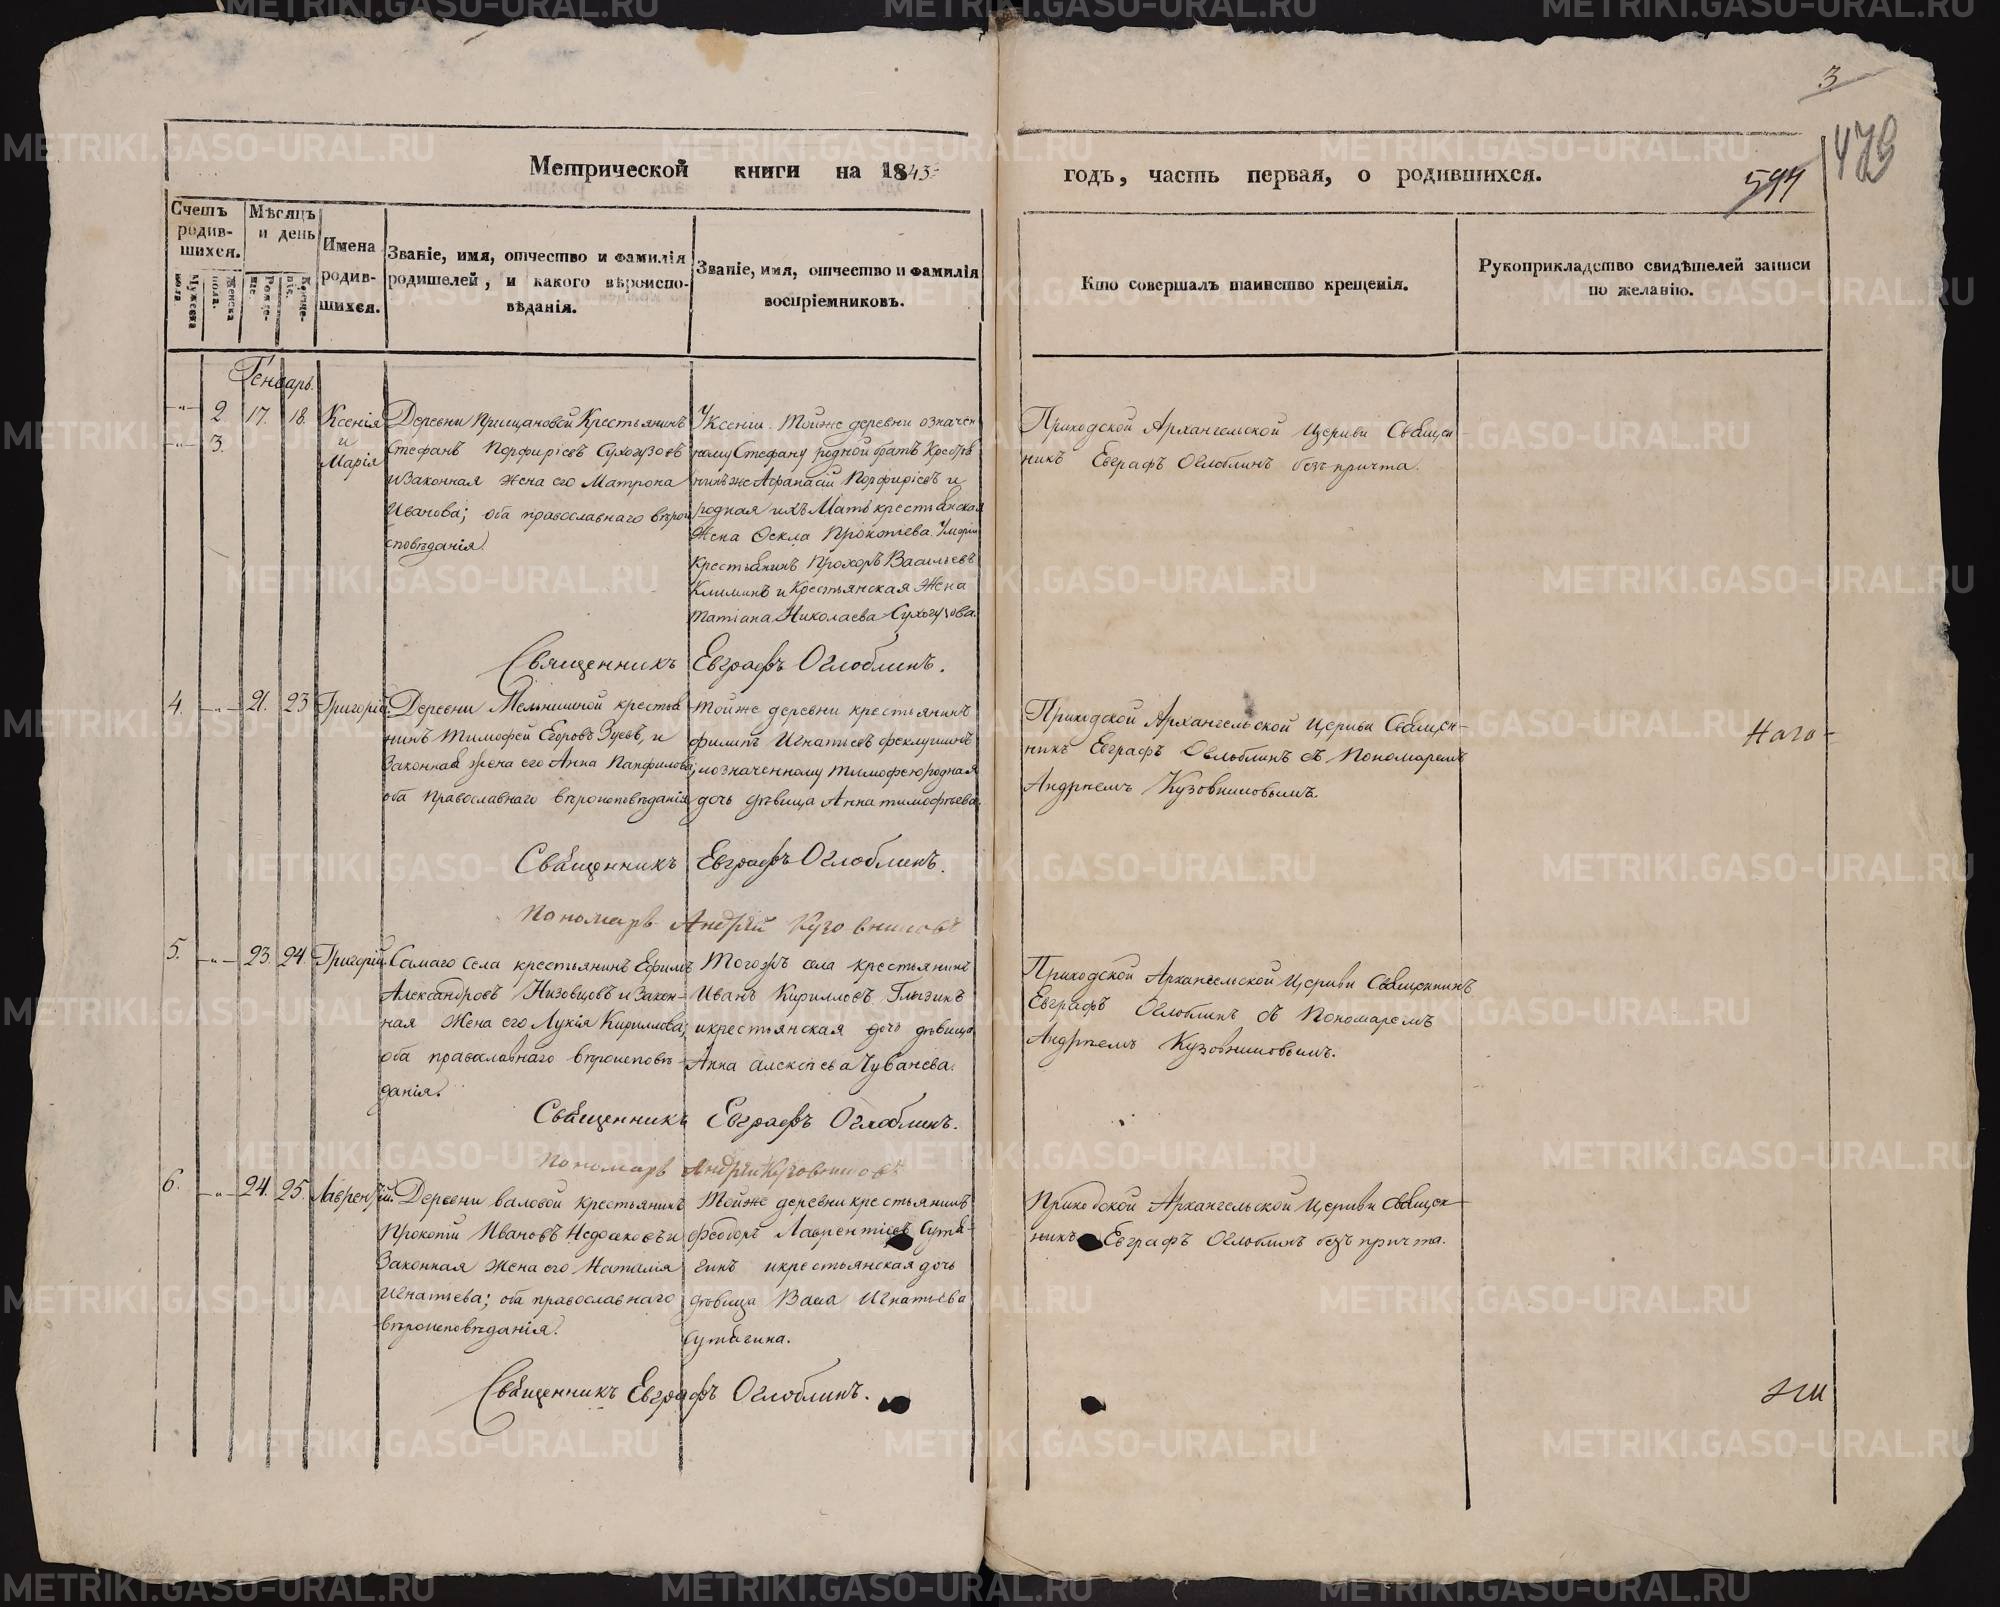 3
473
594
Метрической книги на 1843:
годъ, часть первая, о родившихся.
Счетъ родив-шихся.
Мужеска пола.
Женска пола.
Мѣсяцъ и день
Рожде-нія.
Креще-нія.
Имена родив-шихся.
Званіе, имя, отчество и фамилія
родителей, и какого вѣроиспо-
вѣданія.
Званіе, имя, отчество и фамилія
воспріемниковъ.
Кто совершалъ таинство крещенія.
Рукоприкладство свидѣтелей записи
по желанію.
Генварь.
2. 17. 18.
3.
Ксенія
и
Марія
Деревни Прищановой Крестьянинъ
Стефанъ Порфиріевъ Сухогузовъ
и Законная Жена его Матрона
Иванова; оба православнаго вѣрои
сповѣданія.
У Ксеніи. Тойже деревни означен
ному Стефану родной братъ Кресть
нинъ же Афанасій Порфиріевъ и
родная ихъ Мать крестьянская
Жена Фекла Прокопьева. У Маріи
Крестьянинъ Прохоръ Васильевъ
Климинъ и Крестьянская Жена
Татіана Николаева Сухогузова.
Приходской Архангельской Церкви Священ
никъ Евграфъ Оглоблинъ безъ причта.
Священникъ Евграфъ Оглоблинъ.
4. 21. 23 Григорій.
Деревни Мельнишной крестья
нинъ Тимофей Егоровъ Зуевъ, и
Законная жена его Анна Панфилова;
оба Православнаго вѣроисповѣданія
Тойже деревни крестьянинъ
Филипъ Игнатьевъ Феклушинъ
и означенному Тимофею родная
дочь дѣвица Анна Тимофѣева.
Приходской Архангельской Церкви Священ-
никъ Евграфъ Оглоблинъ съ Пономаремъ
Андрѣемъ Кузовниковымъ.
Наго-
Священникъ Евграфъ Оглоблинъ.
Пономарь Андрѣй Кузовниковъ
5. 23. 24. Григорій.
Самаго Села крестьянинъ Ефимъ
Александровъ Низовцовъ и Закон-
ная Жена его Лукія Кирилова;
оба православнаго вѣроисповѣ-
данія.
Тогожъ села крестьянинъ
Иванъ Кириловъ Глызинъ
и крестьянская дочь дѣвица
Анна Алексѣева Чуванева.
Приходской Архангельской Церкви Священникъ
Евграфъ Оглоблинъ съ Пономаремъ
Андрѣемъ Кузовниковымъ.
Священникъ Евграфъ Оглоблинъ.
Пономарь Андрѣй Кузовниковъ
6. 24. 25. Лаврентій.
Деревни Валовой крестьянинъ
Прокопій Ивановъ и
Законная Жена его Наталія
Игнатьева; оба православнаго
вѣроисповѣданія.
Тойже деревни крестьянинъ
Феодоръ Лаврентіевъ Сутя-
гинъ и крестьянская дочь
дѣвица Васа Игнатьева
Сутягина.
Приходской Архангельской Церкви Священ-
никъ Евграфъ Оглоблинъ безъ причта.
Священникъ Евграфъ Оглоблинъ.